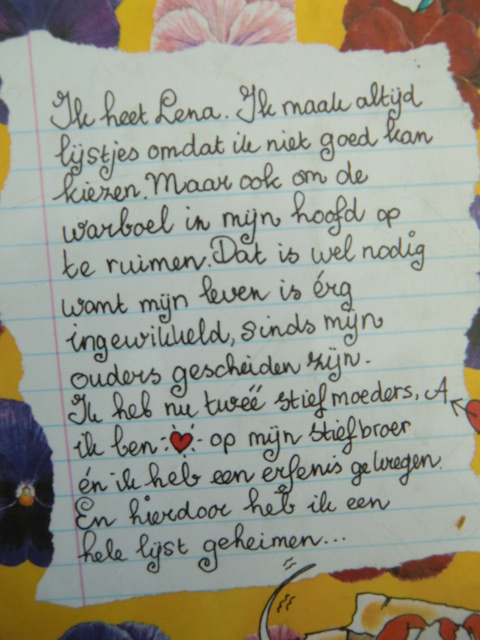 Ik heet Lena. Ik maak altijd
lijstjes omdat ik niet goed kan
kiezen. Maar ook om de
warboel in mijn hoofd op
te ruimen. Dat is wel nodig
want mijn leven is érg
ingewikkeld, sinds mijn
ouders gescheiden zijn.
Ik heb nu twéé stiefmoeders, A
ik ben ❤ op mijn stiefbroer
én ik heb een erfenis gekregen.
En hierdoor heb ik een
hele lijst geheimen...